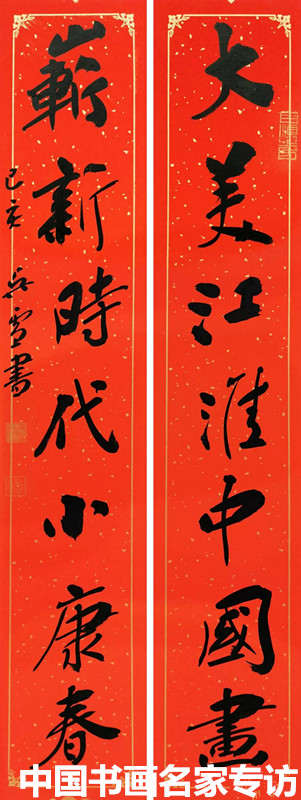 大美江淮中國畫
嶄新時代小康春
己亥
岳雪書
中国书画名家专访